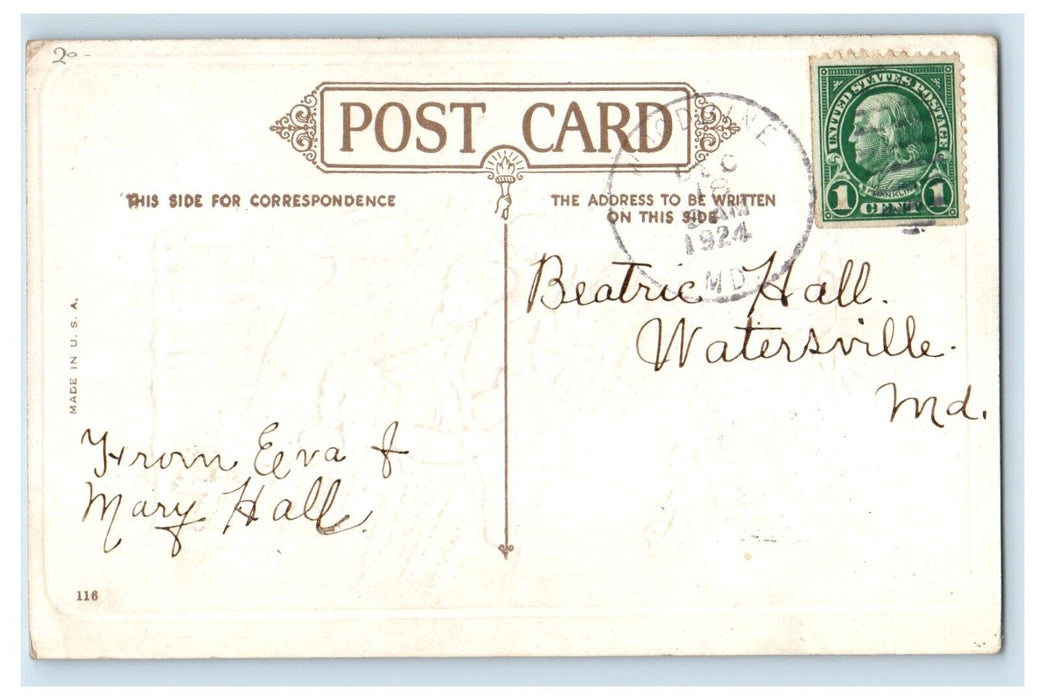 20-
POST CARD
THIS SIDE FOR CORRESPONDENCE
THE ADDRESS TO BE WRITTEN
ON THIS SIDE
UNITED STATES POSTAGE
FRANKLIN
1 CENT 1
WOODBINE
DEC
18
AM
1924
MD.
Beatric Hall.
Watersville.
Md.
MADE IN U. S. A.
From Eva &
Mary Hall.
116